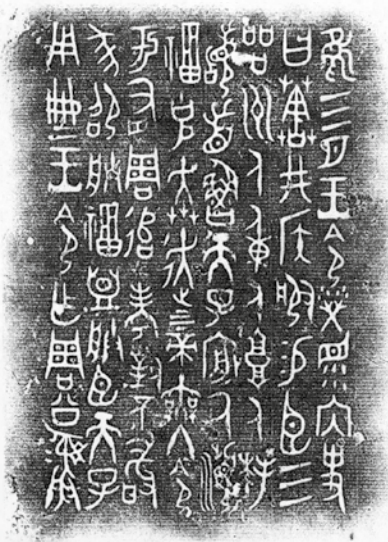 隹三月王令𤇾眔內史
曰𦵯井侯服易臣三
品州人重人𩫏人拜
𩒨首魯天子𠭯厥瀕
福克奔走上下帝無冬令
于有周追考對不敢
㒸卲朕福盟朕臣天子
用典王令乍周公彝